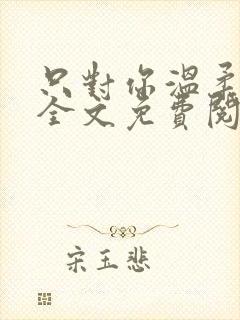 只對你溫柔
全文免費閱
宋玉悲